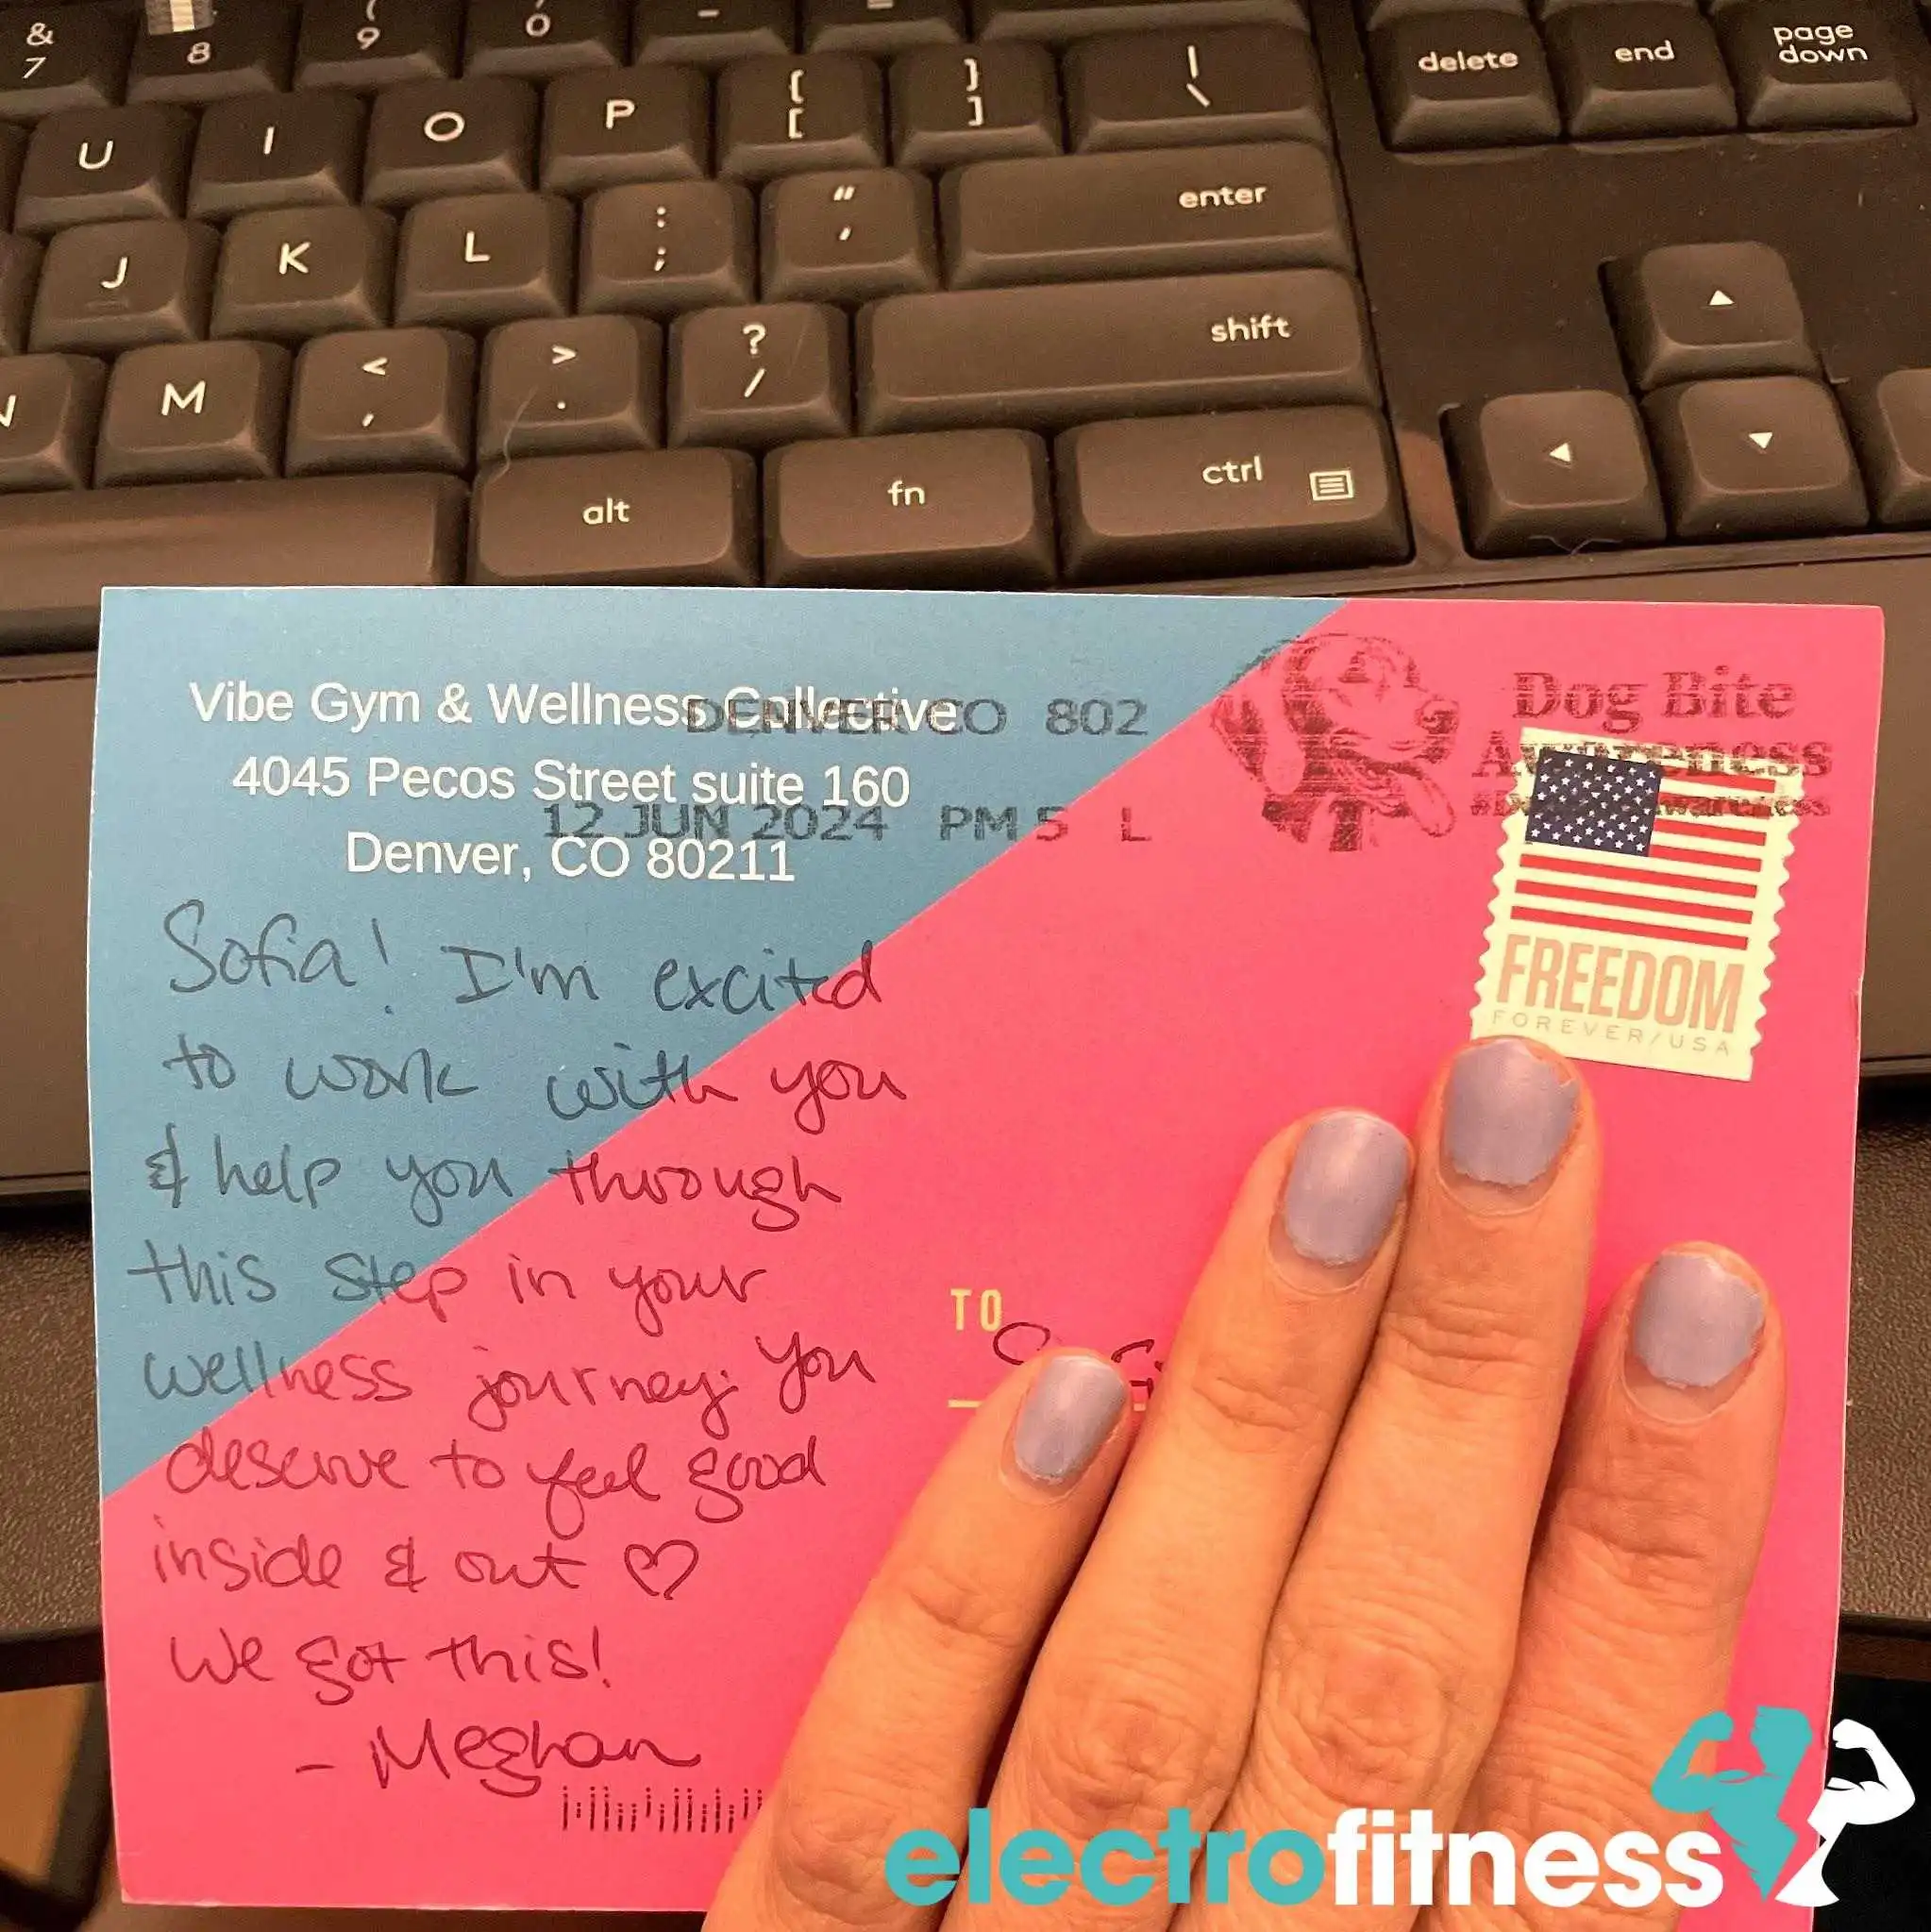 &
7
8
(
9
)
0
U
I
O
P
{
[
}
]
|
\
delete
end
page
down
J
K
L
:
;
"
'
enter
N
M
<
,
>
.
?
/
shift
alt
fn
ctrl
Vibe Gym & Wellness Collective
4045 Pecos Street suite 160
Denver, CO 80211
DENVER CO 802
12 JUN 2024 PM 5 L
Dog Bite
Awareness
FREEDOM
FOREVER/USA
Sofia! I'm excited
to work with you
& help you through
this step in your
wellness journey. You
deserve to feel good
inside & out ♡
We got this!
- Meghan
TO
electrofitness